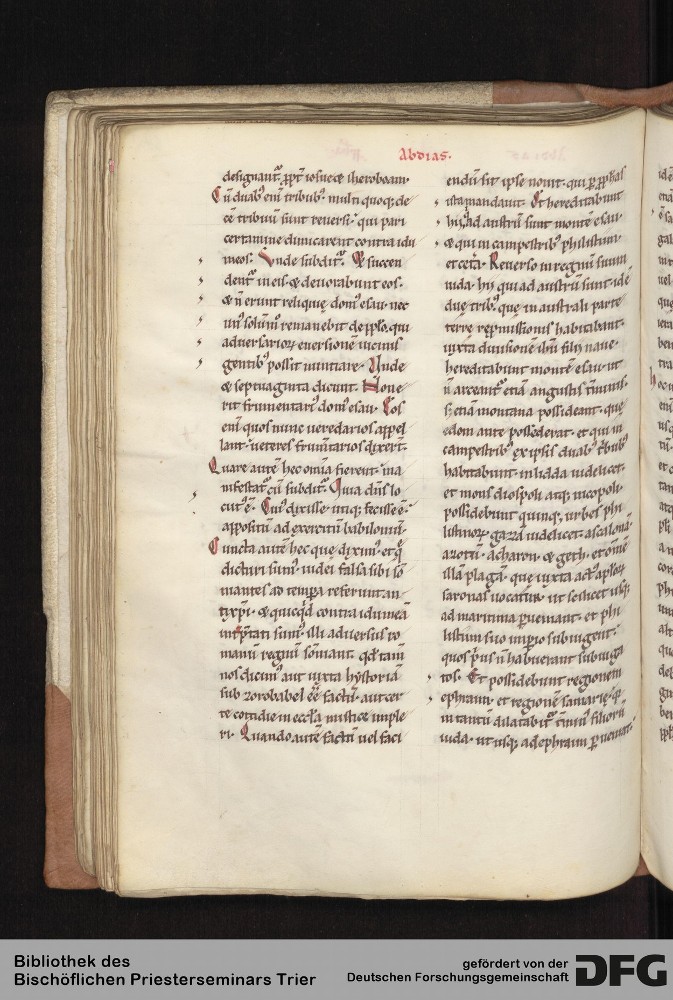 Abdias.
designant᷑. ꝓpt̄ iosue & iheroboam.
Cū duab; enī tribub;. multi quoq; de
cē tribuū sunt reuersi. qui pari
certamine dimicarent contra idu
meos. Vnde subdit᷑. Et succen
dent᷑ in eis. & deuorabunt eos.
& n̄ erunt reliquię domꝰ esau. nec
unꝰ solūm remanebit de ppl̄o. qui
aduersarioꝝ euersionē uicinis
gentib; possit nuntiare. Vnde
& septuaginta dicunt. Non e
rit frumentariꝰ domꝰ esau. Eos
enī quos nunc ueredarios appel
lant. ueteres frum̄tarios dixer̄t.
Quare autē hec om̄ia fierent. ma
nifestat᷑ cū subdit᷑. Quia dn̄s lo
cutꝰ ē. Cuiꝰ dixisse. utiq; fecisse ē.
appositū ad exercitū babiloniū.
Cuncta autē hec que diximꝰ. et q̄
dicturi sumꝰ. iudei falsa sibi sō
niantes ad tempꝰ referunt an
tixp̄i. & quicq̄d contra idumeā
int̄p̄tati sunt. illi aduersus ro
manū regnū sōniant. qd̄ tam̄
nos dicimꝰ aut iuxta hystoriā
sub zorobabel eē factū. aut cer
te cottidie in eccl̄a mistice imple
ri. Quando autē factū uel faci
endū sit ipse nouit. qui ꝑ ꝓphetas
ista mandauit. Et hereditabunt
hi q̄ ad austrū sunt montē esau.
& qui in campestrib; philistiim.
et cet̄a. Reuerso in regnū suum
iuda. hii qui ad austrū sunt. id ē
duę tribꝰ. quę in australi parte
terre repmissionis habitabant.
iuxta diuisionē ihū filii naue.
hereditabunt montē esau. ut
n̄ arceant᷑ etiā angustis t̄minis.
s; etiā montana possideant. quę
edom ante possederat. et qui in
campestrib; ex ipsis duab; t̄bub;
habitabunt. in lidda uidelicet.
et mons diospoli atq; nicopoli.
possidebunt quinq; urbes phi
listinoꝝ. gazzā uidelicet. ascalonā.
azotū. acharon. & geth. et om̄ē
illā plagā. que iuxta actꝰ apl̄oꝝ
saronas uocat᷑. ut scilicet usq;
ad maritima ꝑueniant. et phi
listiim suo imꝑio subiugent.
quos p̄us n̄ habuerant subiuga
tos. Et possidebunt regionem
ephraim. et regionē samarię.
in tantū dilatabit᷑ t̄minꝰ filiorū
iuda. ut usq; ad ephraim ꝑueniat.
Bibliothek des
Bischöflichen Priesterseminars Trier
gefördert von der
Deutschen Forschungsgemeinschaft
DFG